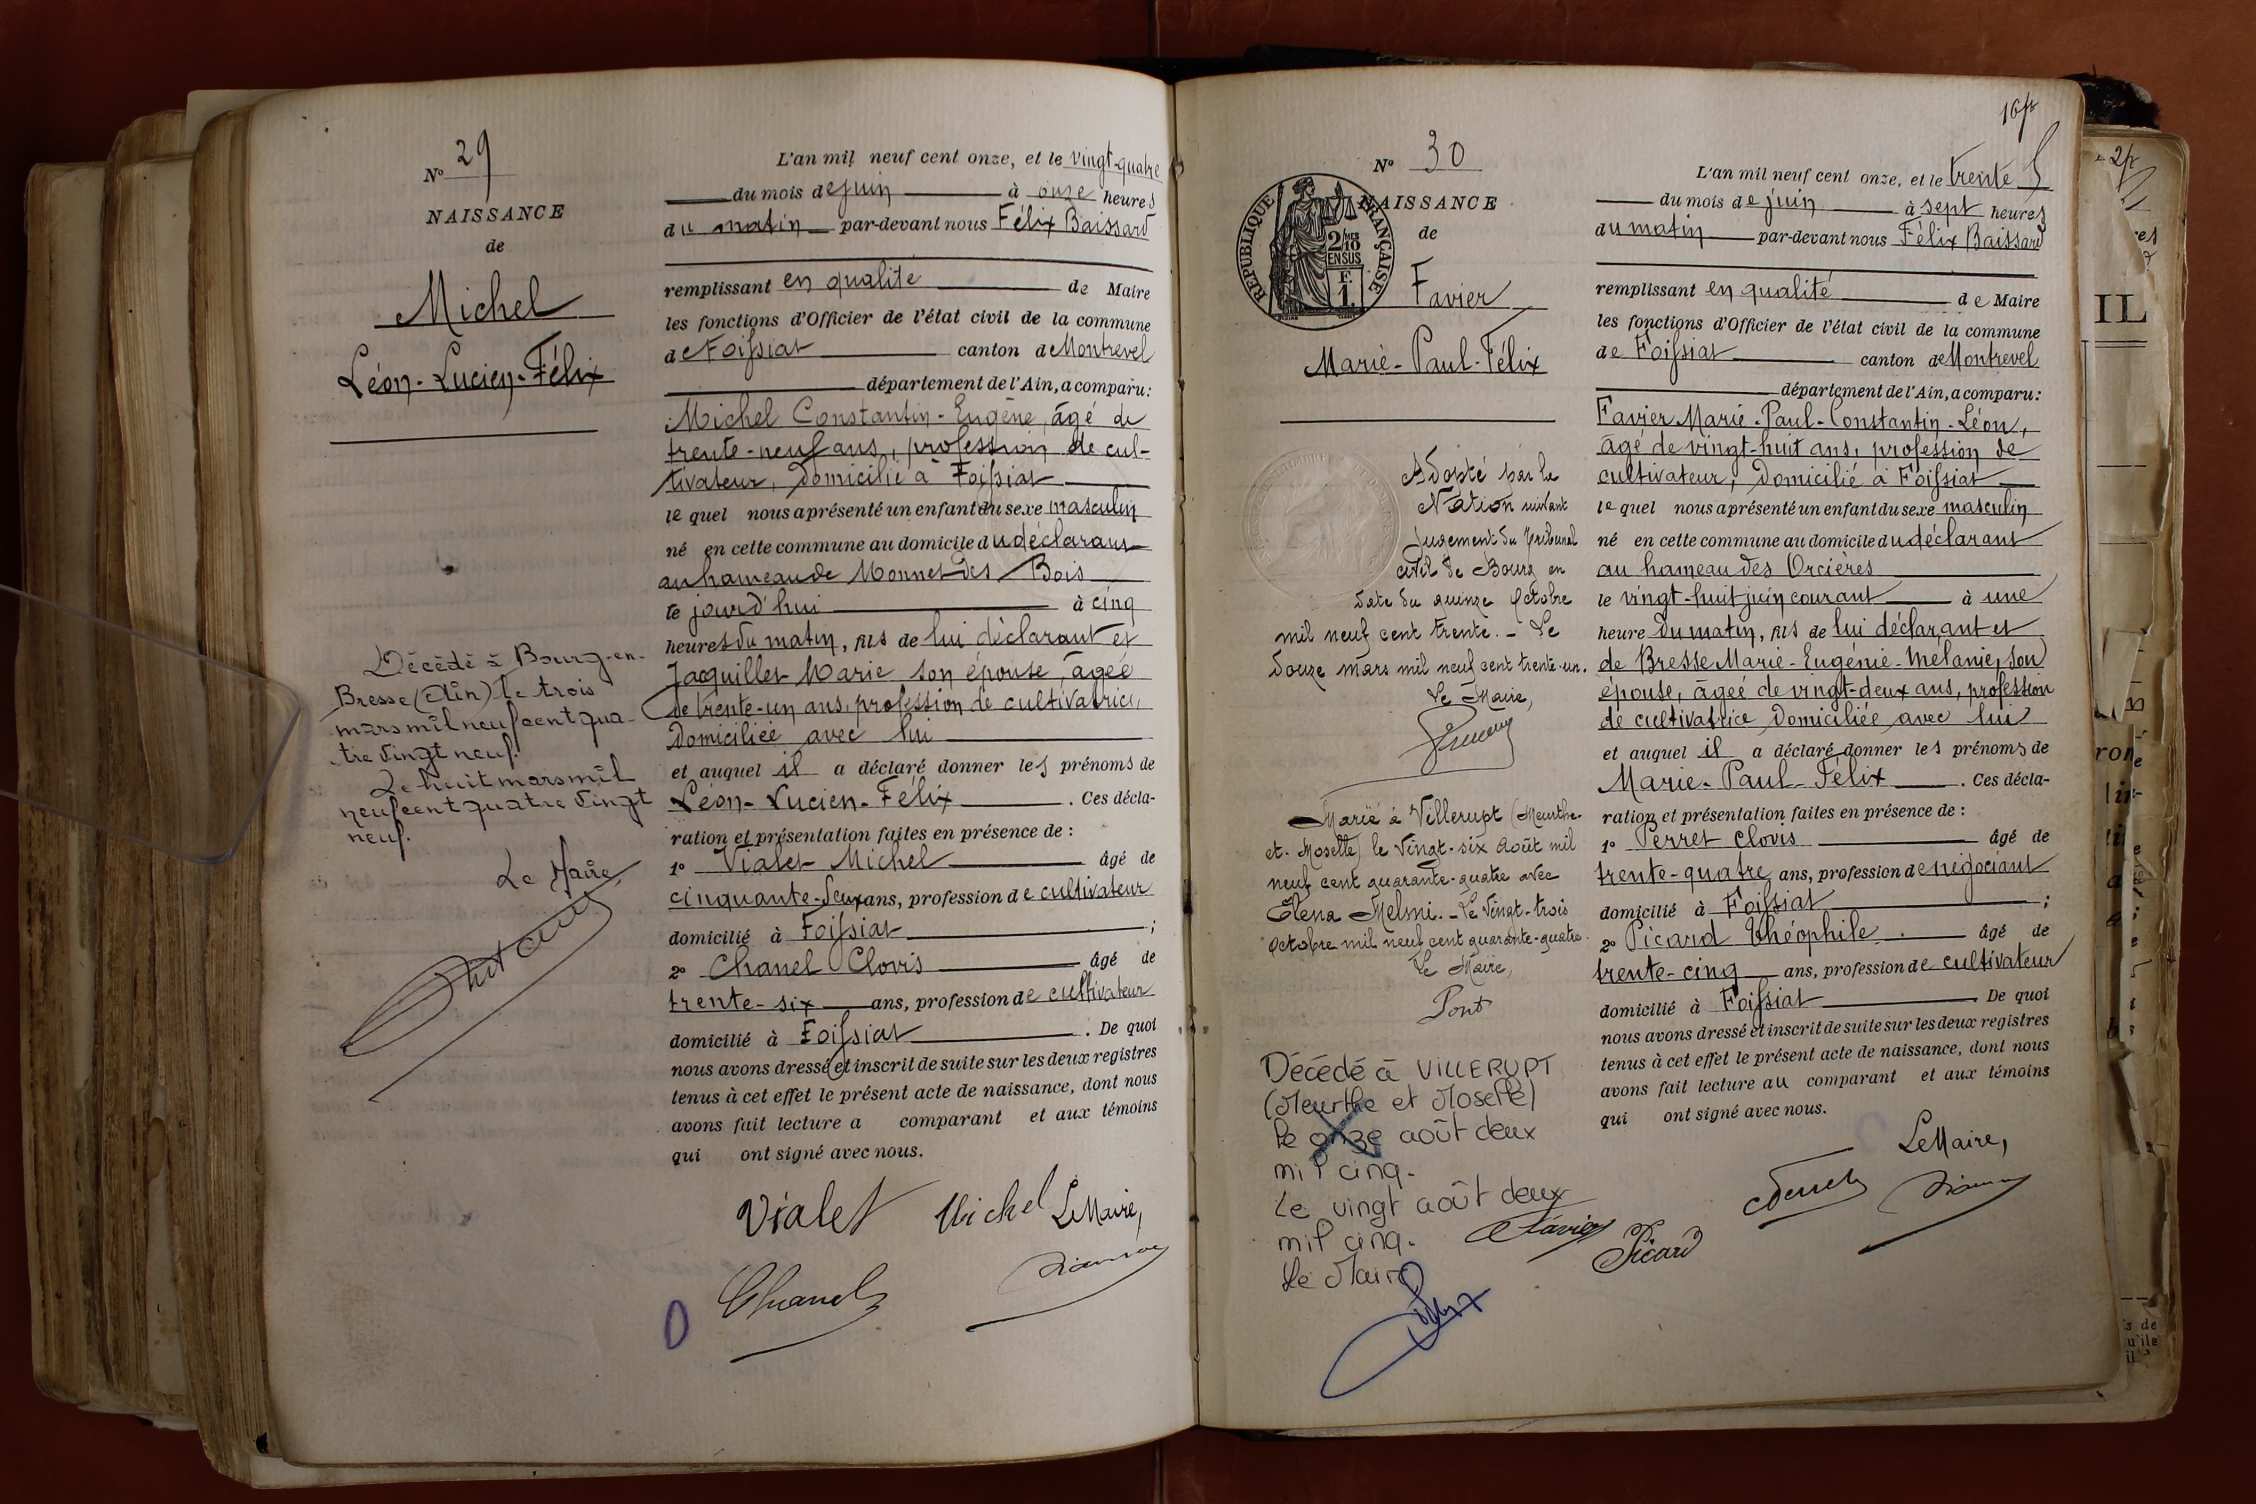 N° 29
NAISSANCE
de
Michel
Léon-Lucien-Félix
Décédé à Bourg-en-
Bresse (Ain) le trois
mars mil neuf cent qua-
tre vingt neuf.
Le huit mars mil
neuf cent quatre vingt
neuf.
Le Maire,
L'an mil neuf cent onze, et le vingt-quatre
du mois de juin à onze heures
du matin par-devant nous Félix Baissard
remplissant en qualité de Maire
les fonctions d'Officier de l'état civil de la commune
de Foissiat canton de Montrevel
département de l'Ain, a comparu:
Michel Constantin-Eugène, âgé de
trente-neuf ans, profession de cul-
tivateur, domicilié à Foissiat
le quel nous a présenté un enfant du sexe masculin
né en cette commune au domicile du déclarant
au hameau de Monnet des Bois
le jourd'hui à cinq
heures du matin, fils de lui déclarant et
Jacquillet Marie son épouse, âgée
de trente-un ans, profession de cultivatrice,
domiciliée avec lui
et auquel il a déclaré donner les prénoms de
Léon-Lucien-Félix. Ces décla-
ration et présentation faites en présence de :
1° Vialet Michel âgé de
cinquante-deux ans, profession de cultivateur
domicilié à Foissiat ;
2° Chanel Clovis âgé de
trente-six ans, profession de cultivateur
domicilié à Foissiat. De quoi
nous avons dressé et inscrit de suite sur les deux registres
tenus à cet effet le présent acte de naissance, dont nous
avons fait lecture a comparant et aux témoins
qui ont signé avec nous.
Vialet Michel Le Maire,
Chanel
N° 30
NAISSANCE
de
RÉPUBLIQUE FRANÇAISE
2/10MES
EN SUS
F.
1.
Favier
Marie-Paul-Félix
Adopté par la
Nation suivant
jugement du Tribunal
civil de Bourg en
date du quinze Octobre
mil neuf cent trente. - Le
douze mars mil neuf cent trente-un.
Le Maire,
Marié à Villerupt (Meurthe-
et-Moselle) le vingt-six Août mil
neuf cent quarante-quatre avec
Elena Melmi. - Le vingt-trois
Octobre mil neuf cent quarante-quatre.
Le Maire,
Pont
Décédé à VILLERUPT
(Meurthe et Moselle)
le onze août deux
mil cinq.
Le vingt août deux
mil cinq.
Le Maire
L'an mil neuf cent onze, et le trente
du mois de juin à sept heures
du matin par-devant nous Félix Baissard
remplissant en qualité de Maire
les fonctions d'Officier de l'état civil de la commune
de Foissiat canton de Montrevel
département de l'Ain, a comparu:
Favier Marie-Paul-Constantin-Léon,
âgé de vingt-huit ans, profession de
cultivateur, domicilié à Foissiat
le quel nous a présenté un enfant du sexe masculin
né en cette commune au domicile du déclarant
au hameau des Orcières
le vingt-huit juin courant à une
heure du matin, fils de lui déclarant et
de Bresse Marie-Eugénie-Mélanie, son
épouse, âgée de vingt-deux ans, profession
de cultivatrice domiciliée avec lui
et auquel il a déclaré donner les prénoms de
Marie-Paul-Félix. Ces décla-
ration et présentation faites en présence de :
1° Perret Clovis âgé de
trente-quatre ans, profession de négociant
domicilié à Foissiat ;
2° Picard Théophile âgé de
trente-cinq ans, profession de cultivateur
domicilié à Foissiat. De quoi
nous avons dressé et inscrit de suite sur les deux registres
tenus à cet effet le présent acte de naissance, dont nous
avons fait lecture au comparant et aux témoins
qui ont signé avec nous.
Le Maire,
Favier Picard